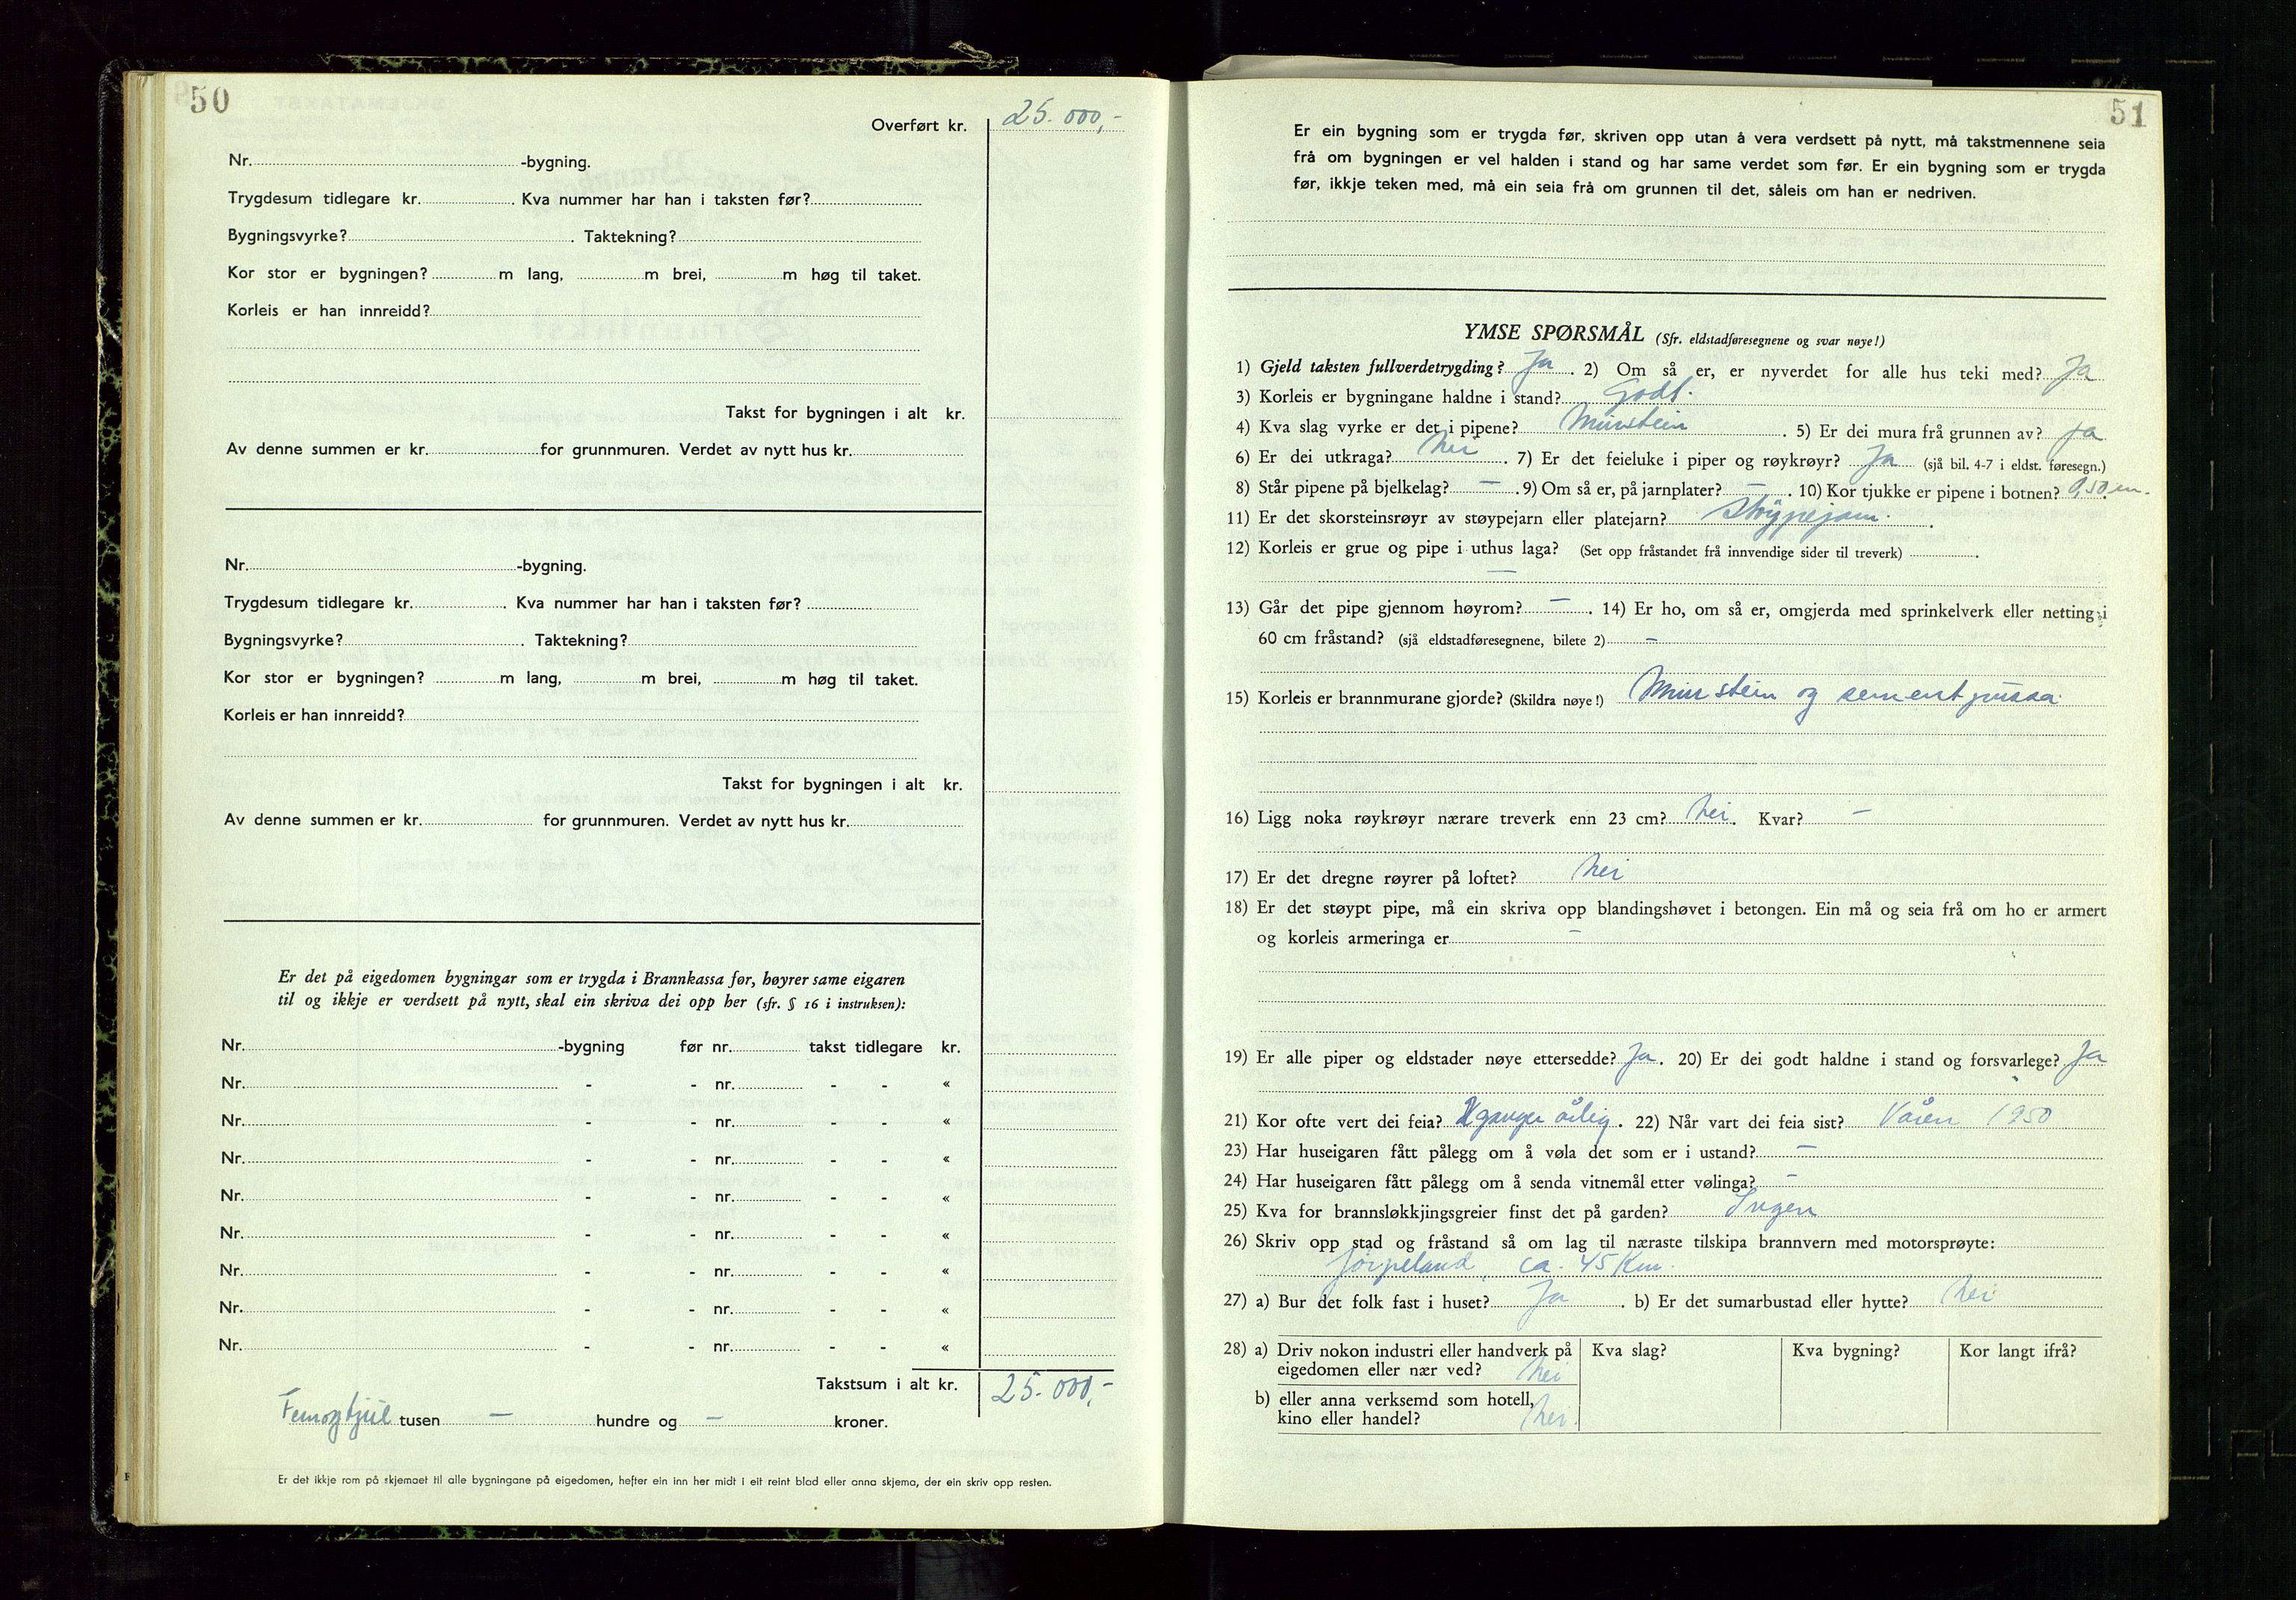 50
Overført kr. 25.000,-
Nr. -bygning.
Trygdesum tidlegare kr. . Kva nummer har han i taksten før?
Bygningsvyrke? . Taktekning?
Kor stor er bygningen? m lang, m brei, m høg til taket.
Korleis er han innreidd?
Takst for bygningen i alt kr.
Av denne summen er kr. for grunnmuren. Verdet av nytt hus kr.
Nr. -bygning.
Trygdesum tidlegare kr. . Kva nummer har han i taksten før?
Bygningsvyrke? . Taktekning?
Kor stor er bygningen? m lang, m brei, m høg til taket.
Korleis er han innreidd?
Takst for bygningen i alt kr.
Av denne summen er kr. for grunnmuren. Verdet av nytt hus kr.
Er det på eigedomen bygningar som er trygda i Brannkassa før, høyrer same eigaren
til og ikkje er verdsett på nytt, skal ein skriva dei opp her (sfr. § 16 i instruksen):
Nr. -bygning før nr. takst tidlegare kr.
Nr. - - nr. - - «
Nr. - - nr. - - «
Nr. - - nr. - - «
Nr. - - nr. - - «
Nr. - - nr. - - «
Nr. - - nr. - - «
Nr. - - nr. - - «
Nr. - - nr. - - «
Takstsum i alt kr. 25.000,-
Femogtjue tusen — hundre og — kroner.
Er det ikkje rom på skjemaet til alle bygningane på eigedomen, hefter ein inn her midt i eit reint blad eller anna skjema, der ein skriv opp resten.
51
Er ein bygning som er trygda før, skriven opp utan å vera verdsett på nytt, må takstmennene seia
frå om bygningen er vel halden i stand og har same verdet som før. Er ein bygning som er trygda
før, ikkje teken med, må ein seia frå om grunnen til det, såleis om han er nedriven.
YMSE SPØRSMÅL (Sfr. eldstadføresegnene og svar nøye!)
1) Gjeld taksten fullverdetrygding? Ja . 2) Om så er, er nyverdet for alle hus teki med? Ja
3) Korleis er bygningane haldne i stand? Godt.
4) Kva slag vyrke er det i pipene? Murstein . 5) Er dei mura frå grunnen av? Ja
6) Er dei utkraga? Nei . 7) Er det feieluke i piper og røykrøyr? Ja (sjå bil. 4-7 i eldst. føresegn.)
8) Står pipene på bjelkelag? — . 9) Om så er, på jarnplater? — . 10) Kor tjukke er pipene i botnen? 0,50 m.
11) Er det skorsteinsrøyr av støypejarn eller platejarn? Støypejarn. .
12) Korleis er grue og pipe i uthus laga? (Set opp fråstandet frå innvendige sider til treverk) .
—
13) Går det pipe gjennom høyrom? — . 14) Er ho, om så er, omgjerda med sprinkelverk eller netting i
60 cm fråstand? (sjå eldstadføresegnene, bilete 2) —
15) Korleis er brannmurane gjorde? (Skildra nøye!) Murstein og sementpussa
16) Ligg noka røykrøyr nærare treverk enn 23 cm? Nei. Kvar? —
17) Er det dregne røyrer på loftet? Nei
18) Er det støypt pipe, må ein skriva opp blandingshøvet i betongen. Ein må og seia frå om ho er armert
og korleis armeringa er —
19) Er alle piper og eldstader nøye ettersedde? Ja . 20) Er dei godt haldne i stand og forsvarlege? Ja
21) Kor ofte vert dei feia? ganger årlig . 22) Når vart dei feia sist? Våren 1950
23) Har huseigaren fått pålegg om å vøla det som er i ustand? —
24) Har huseigaren fått pålegg om å senda vitnemål etter vølinga? —
25) Kva for brannsløkkjingsgreier finst det på garden? Ingen
26) Skriv opp stad og fråstand så om lag til næraste tilskipa brannvern med motorsprøyte:
Jørpeland, ca. 45 Km.
27) a) Bur det folk fast i huset? Ja . b) Er det sumarbustad eller hytte? Nei
28) a) Driv nokon industri eller handverk på Kva slag? Kva bygning? Kor langt ifrå?
eigedomen eller nær ved? Nei
b) eller anna verksemd som hotell,
kino eller handel? Nei.